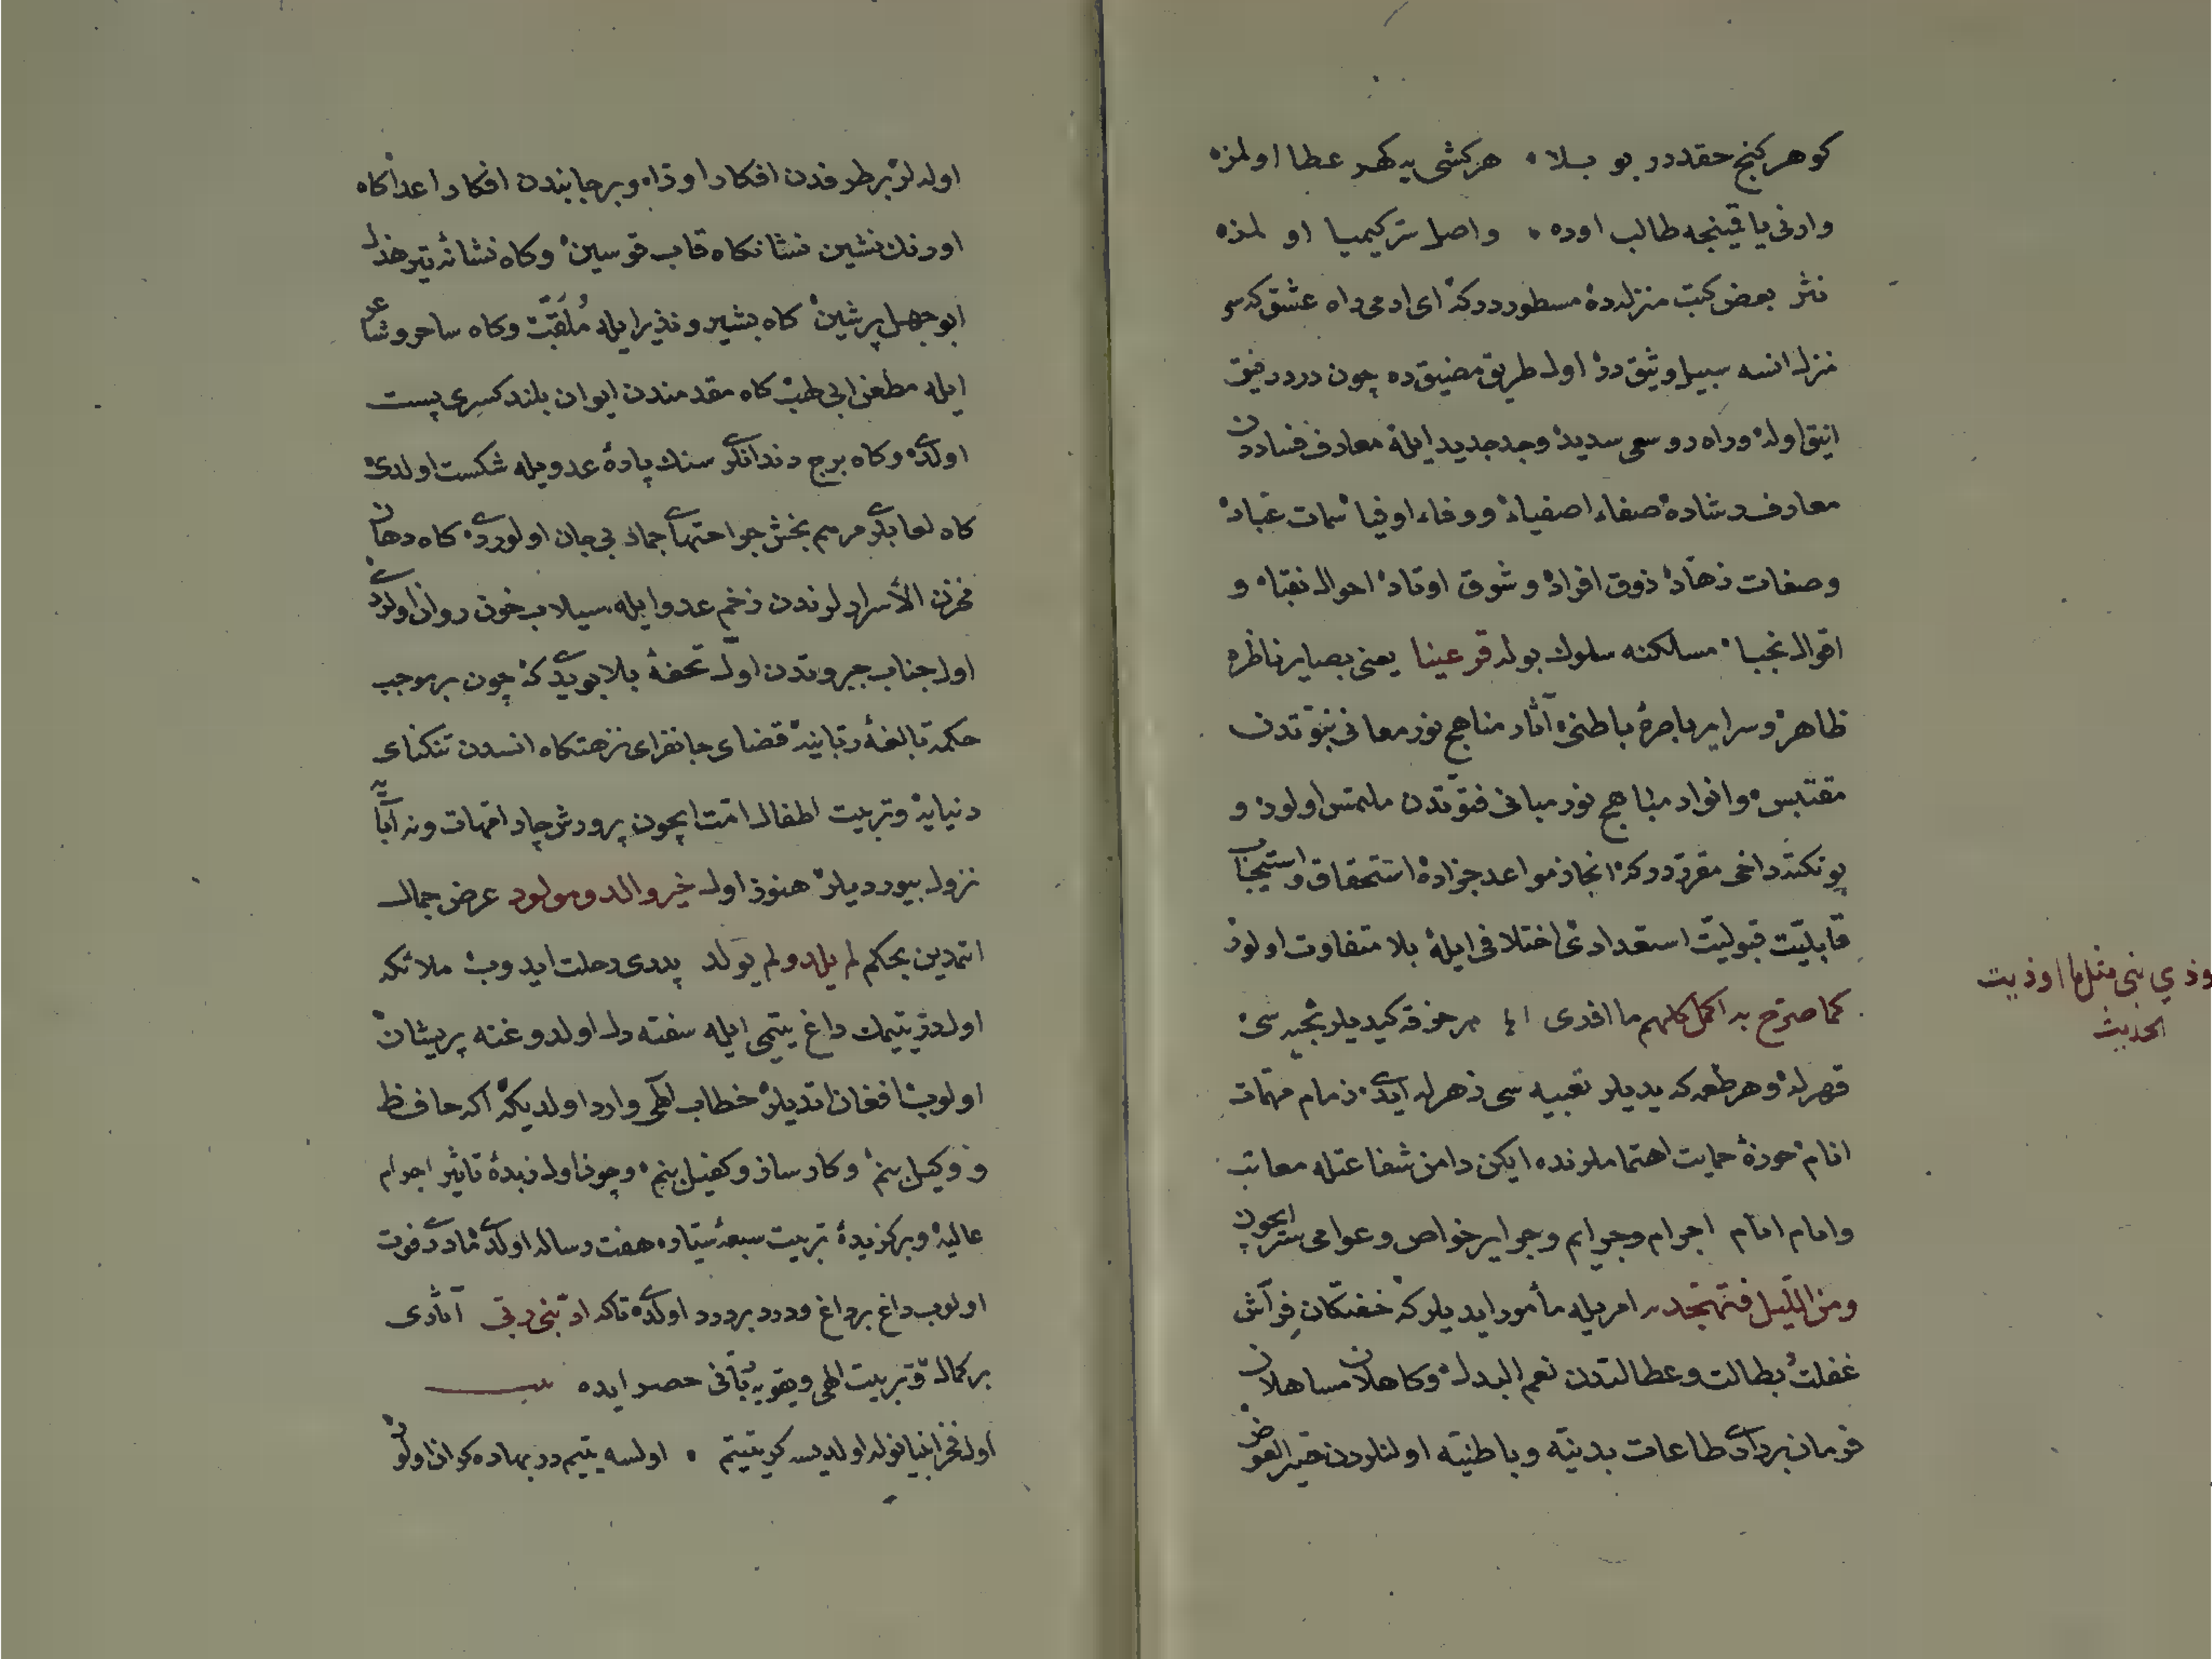 كوهر كنج حقدر بو بلا هر كشی يه كهر عطا اولمز
وارنی ياقينجه طالب اوده واصل سر كيميا اولمز
نثر بعض كتب منزلده مسطوردركه ای ادمی راه عشق كه سر
منزل انسه سبيل وثيق در اول طريق مضيق ده چون درد رفيق
انيق اوله وراه رو سعی سديد وجد جديد ايله معارف
معارف رشاد صفاء اصفيا ووفاء اوفيا سمات عباد
وصفات زهاد ذوق افراد وشوق اوتاد احوال نقبا و
اقوال نجبا مسالكنه سلوك بولد قر عينا يعنی بصاير ناظره
ظاهر وسراير باصرۀ باطنی آثار مناهج نور معانی نبوتدن
مقتبس وانوار مباهج نور مبانی فتوتدن ملتمس اولور و
بو نكته داخی مقرردركه انجاز مواعد جزاده استحقاق واستيجاب
قابليت قبوليت استعدادی اختلافی ايله بلا متفاوت اولور
كما صرح به اكمل كلهم ما اوذی هر خرقه كيديلر بخيه سی
قهرله وهر طعمه كه يديلر تعبيه سی زهرله ايدی زمام مهمات
انام حوزۀ حمايت اهتماملرنده ايكن دامن شفاعتله معاتب
وامام انام اجرام وجرايم وجراير خواص وعوامی ستر ايچون
ومن الليل فتهجد به امريله مأمور ايديلر كه خفتكان فراش
غفلت بطالت وعطالتدن نعم البدل وكاهلان مساهلان
فرمان بردار طاعات بدنيه وباطنيه اولنلردن خير العوض
وذي نبی مثل ما اوذيت
الحديث
اولدلر بر طرفدن افكار اوزاه وبر جانبدن افكار اعدا كاه
اورنك نشين نشانكاه قاب قوسين وكاه نشانۀ تير خذل
ابو جهل پر شين كاه بشير ونذير ايله ملقب وكاه ساحر وشاعر
ايله مطعن ابی طب كاه مقدمندن ايوان بلند كسری پست
اولدی وكاه برج دندانلری سنك پارۀ عدويله شكست اولدی
كاه لعابلری مرهم بخش جراحتهای جماد بی جان اولوردی كاه دهان
مخزن الأسرارلرندن زخم عدو ايله سيلاب خون روان اولوردی
اول جناب جبروتدن اول تحفۀ بلا بو يدی كه چون بر موجب
حكمت بالغۀ ربانيه قضای جانفزای نزهتكاه انسدن تنكنای
دنيايه وتربيت اطفال امت ايچون پرورش چار امهات ونه آبايه
نزول بيورديلر هنوز اول خير والد ومولود عرض جمال
اتمدين بحكم لم يلد ولم يولد پدری رحلت ايدوب ملائكه
اول در يتيمك داغ يتيمی ايله سفته دل اولدوغنه پريشان
اولوب افغان اتديلر خطاب الهی وارد اولديكه اكه حافظ
و وكيل بنم وكارساز وكفيل بنم وچون اول زبدۀ تاثير اجرام
عاليه وبركزيدۀ تربيت سبعۀ سياره هفت ساله اولدی مادری فوت
اولوب داغ بر داغ ودرد بر درد اولدی تاكه ادبنی ربی آثاری
بر كمال وتربيت الهی وتقويۀ ربانی حصر ايده بيت
اول فخر انبيا نوله اولديسه كر يتيم اولسه يتيم در بهاده كران اولور